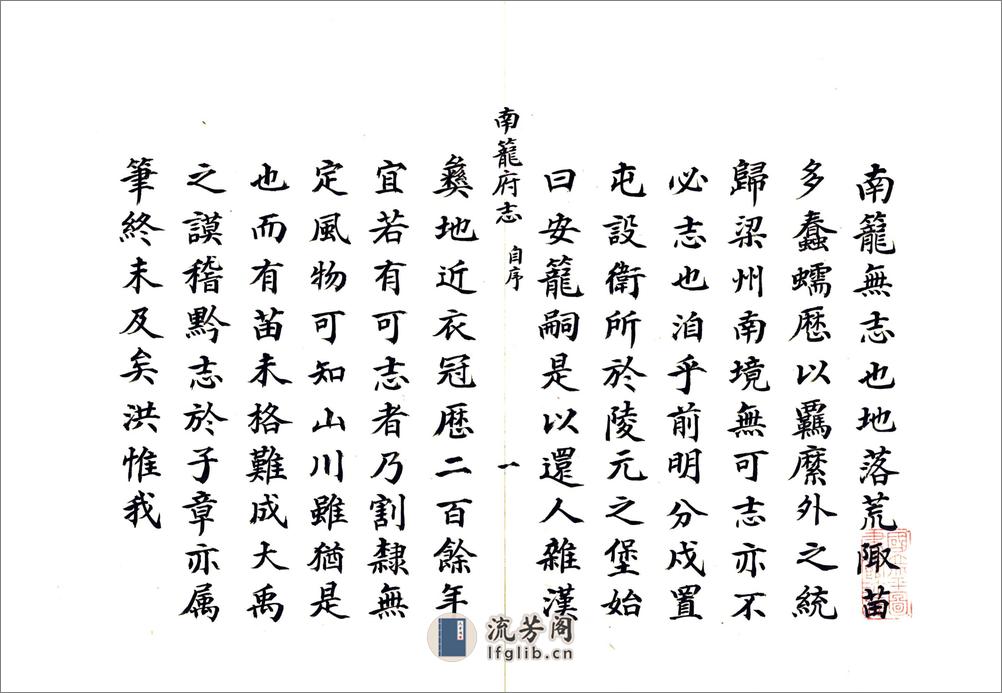 南籠無志也地落荒陬苗
多蠢蠕歷以羈縻外之統
歸梁州南境無可志亦不
必志也洎乎前明分戍置
屯設衛所於陵元之堡始
曰安籠嗣是以還人雜漢
南籠府志 自序 一
彝地近衣冠歷二百餘年
宜若有可志者乃割隸無
定風物可知山川雖猶是
也而有苗未格難成大禹
之謨稽黔志於子章亦属
筆終未及矣洪惟我
流芳阁
lfglib.cn